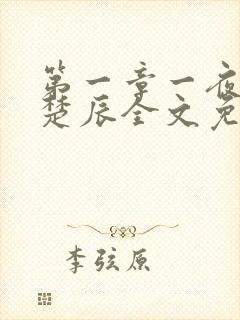 第一章一夜
楚辰全文免
李弦原